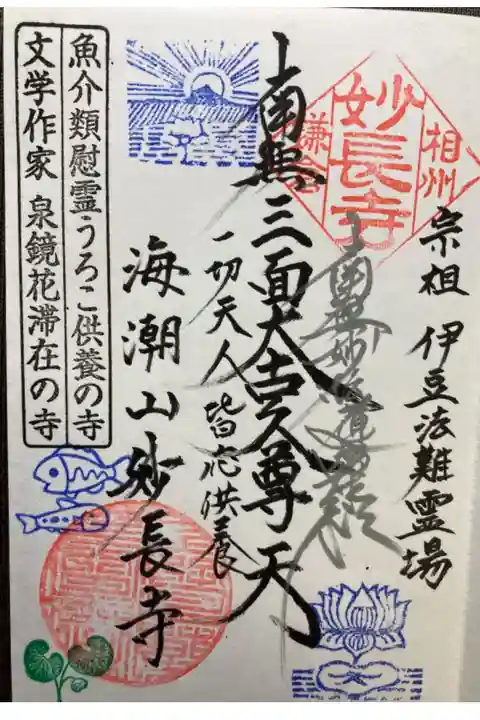 相州
妙長寺
鎌倉
宗祖 伊豆法難霊場
南無妙法蓮華経
南無三面大古久尊天
一切天人皆応供養
海潮山妙長寺
魚介類慰霊うろこ供養の寺
文学作家 泉鏡花滞在の寺